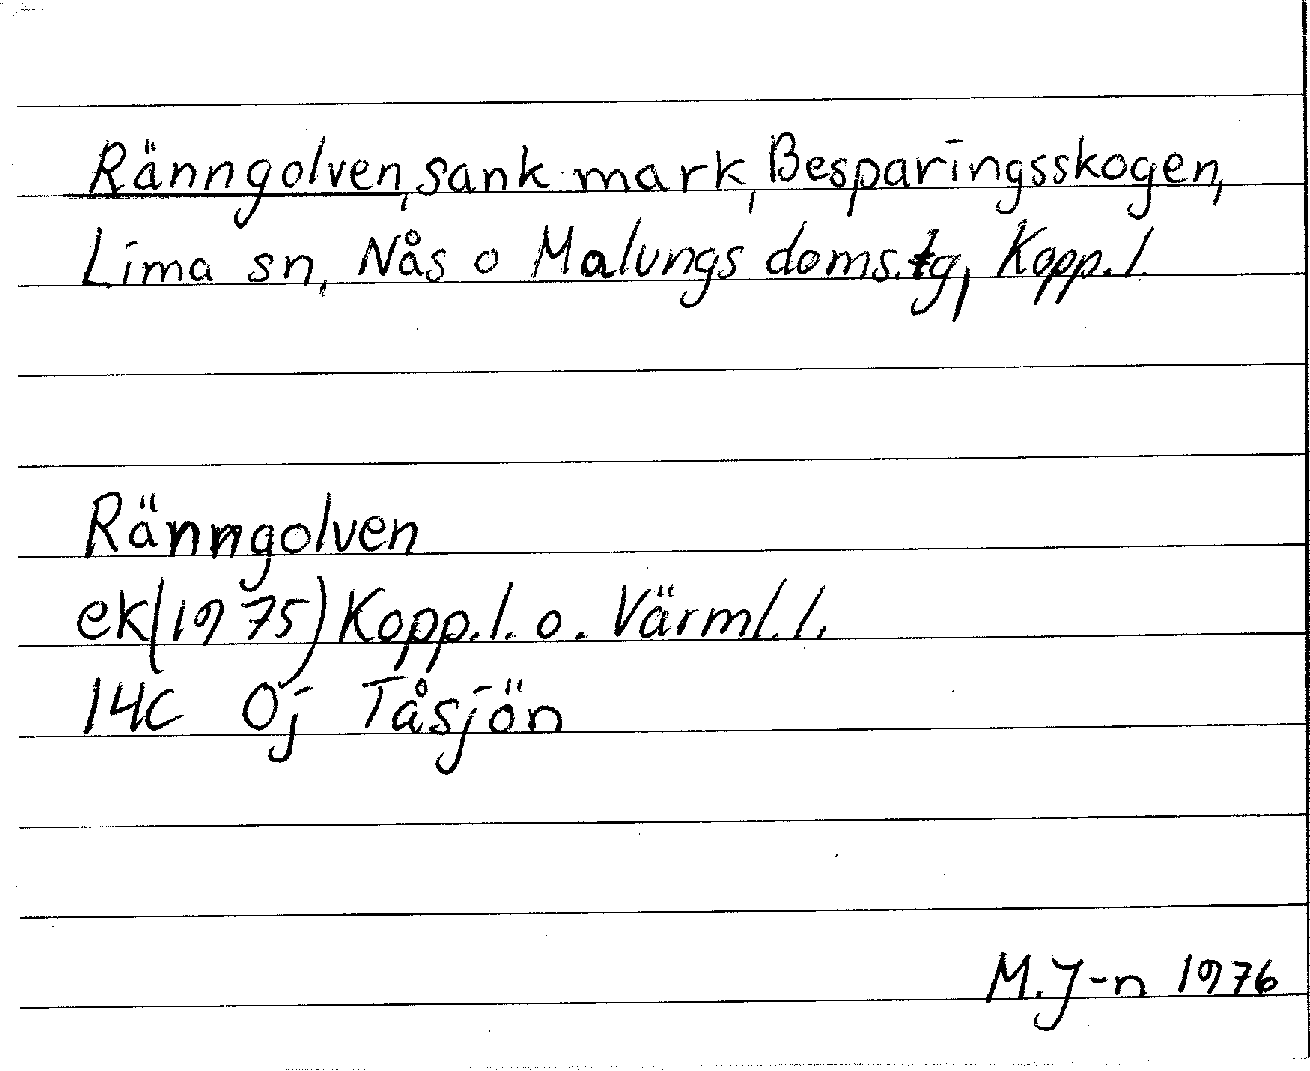 Ränngolven, sank mark, Besparingsskogen,
Lima sn, Nås o Malungs doms.tg, Kopp.l.
Ränngolven
ek(1975) Kopp.l. o. Värml.l.
14C 0j Tåsjön
M.J-n 1976